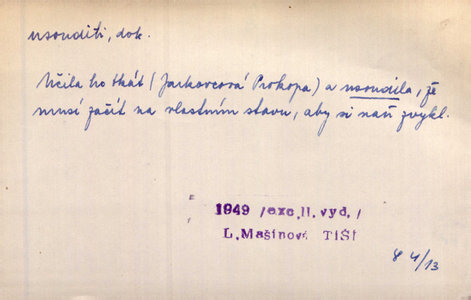 usouditi, dok.
Učila ho tkát (Jarkovcová Prokopa) a usoudila, že
musí začít na vlastním stavu, aby si naň zvykl.
1949 /exc.II. vyd. /
L. Mašínová TIŠI
84/13